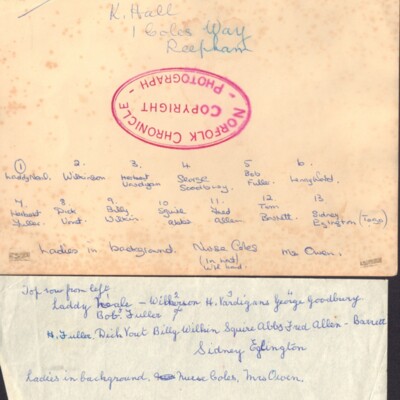 K. Hall
1 Coles Way
Reepham
NORFOLK CHRONICLE
COPYRIGHT
- PHOTOGRAPH -
1 2. 3. 4. 5 6.
Wilkinson Herbert George Bob
Goodbury. Fuller.
7. 8 9. 10 11. 12 13
Herbert Dick Billy Squire Fred Tom Sidney
Fuller. Vout. Wilkin Abbs Allen Barrett. Eglington
Ladies in background. Nurse Coles Mrs Owen.
(In hat)
Top row from left
Laddy - Wilkerson H. Vardigans George Goodbury
Bob Fuller
H. Fuller. Dick Vout Billy Wilkin Squire Abbs Fred Allen - Barrett
Sidney Eglington
Ladies in background. Nurse Coles, Mrs Owen.